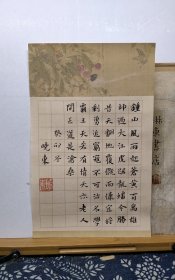 鍾山風雨起蒼黃百萬雄
師過大江虎踞龍盤今勝
昔天翻地覆慨而慷宜將
剩勇追窮寇不可沽名學
霸王天若有情天亦老人
間正道是滄桑
癸卯冬
曉東